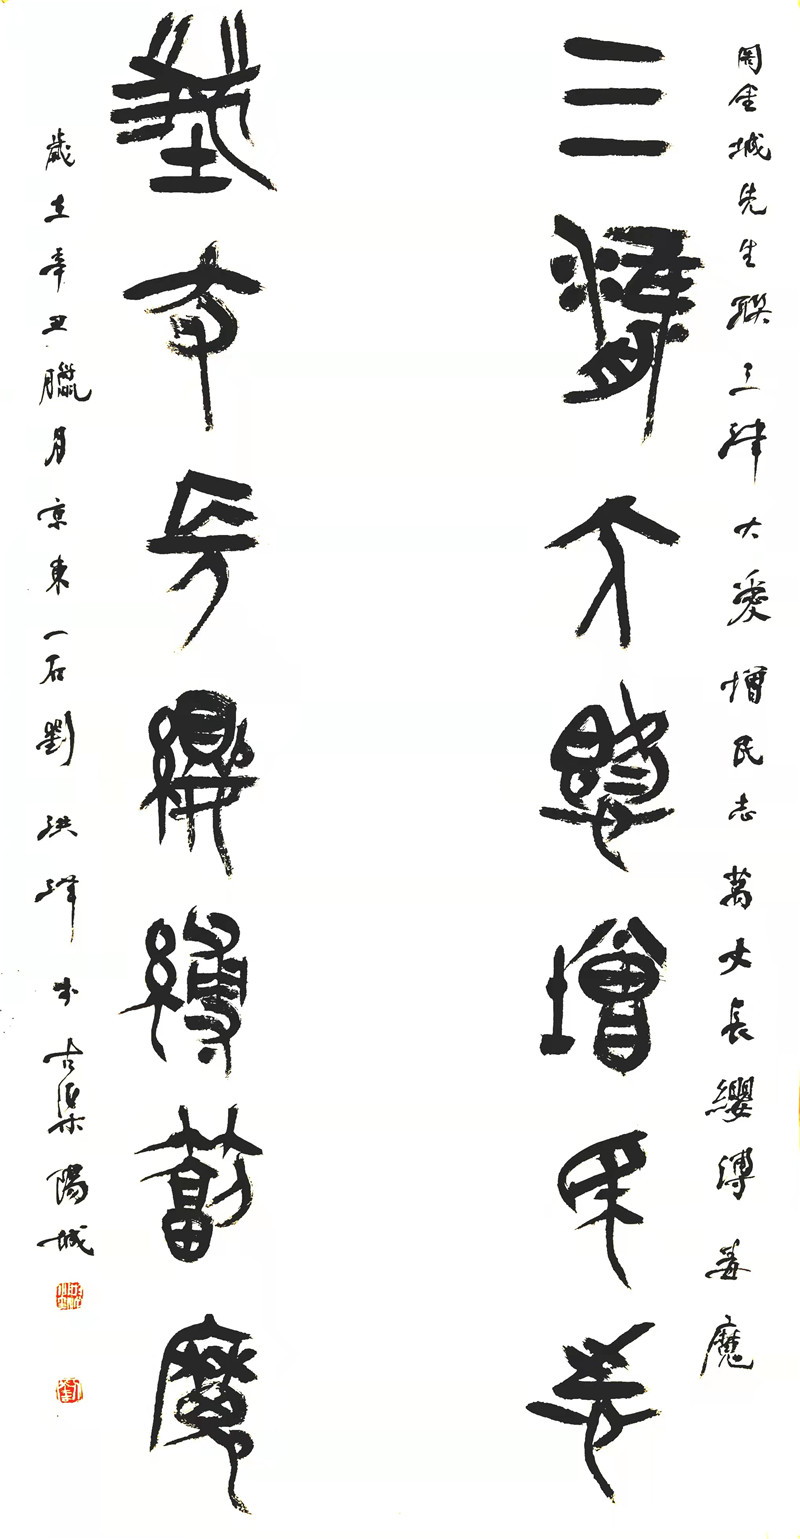 周金城先生聯三津大愛增民志萬丈長纓縛毒魔
三津大愛增民志
萬丈長纓縛毒魔
歲在辛丑臘月京東一石劉洪洋書古渠陽城